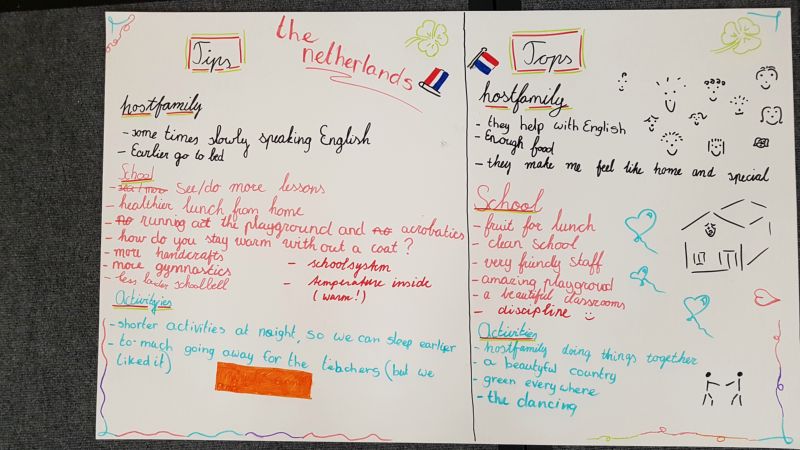 the
netherlands
Tips
hostfamily
- some times slowly speaking English
- Earlier go to bed
School
- see/do more lessons
- healthier lunch from home
- no running at the playground and no acrobaties
- how do you stay warm without a coat?
- more handcrafts
- more gymnastics
- less louder schoolbell
- schoolsystem
- temperature inside
(warm!)
Activityies
- shorter activities at night, so we can sleep earlier
- to much going away for the teachers (but we
liked it)
Tops
hostfamily
- they help with English
- Enough food
- they make me feel like home and special
School
- fruit for lunch
- clean school
- very friendly staff
- amazing playground
- a beautiful classrooms
- discipline
Activities
- hostfamily doing things together
- a beautyful country
- green every where
- the dancing